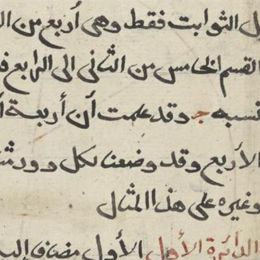 الثوابت فقط وهي أربع من ال
القسم الخامس من الثاني الى الرابع ف
نسبه جـ وقد علمت أن أربعة أ
الأربع وقد وضعنا لكل دور
وغيره على هذا المثال
الدائرة الأولى الأول مضاف